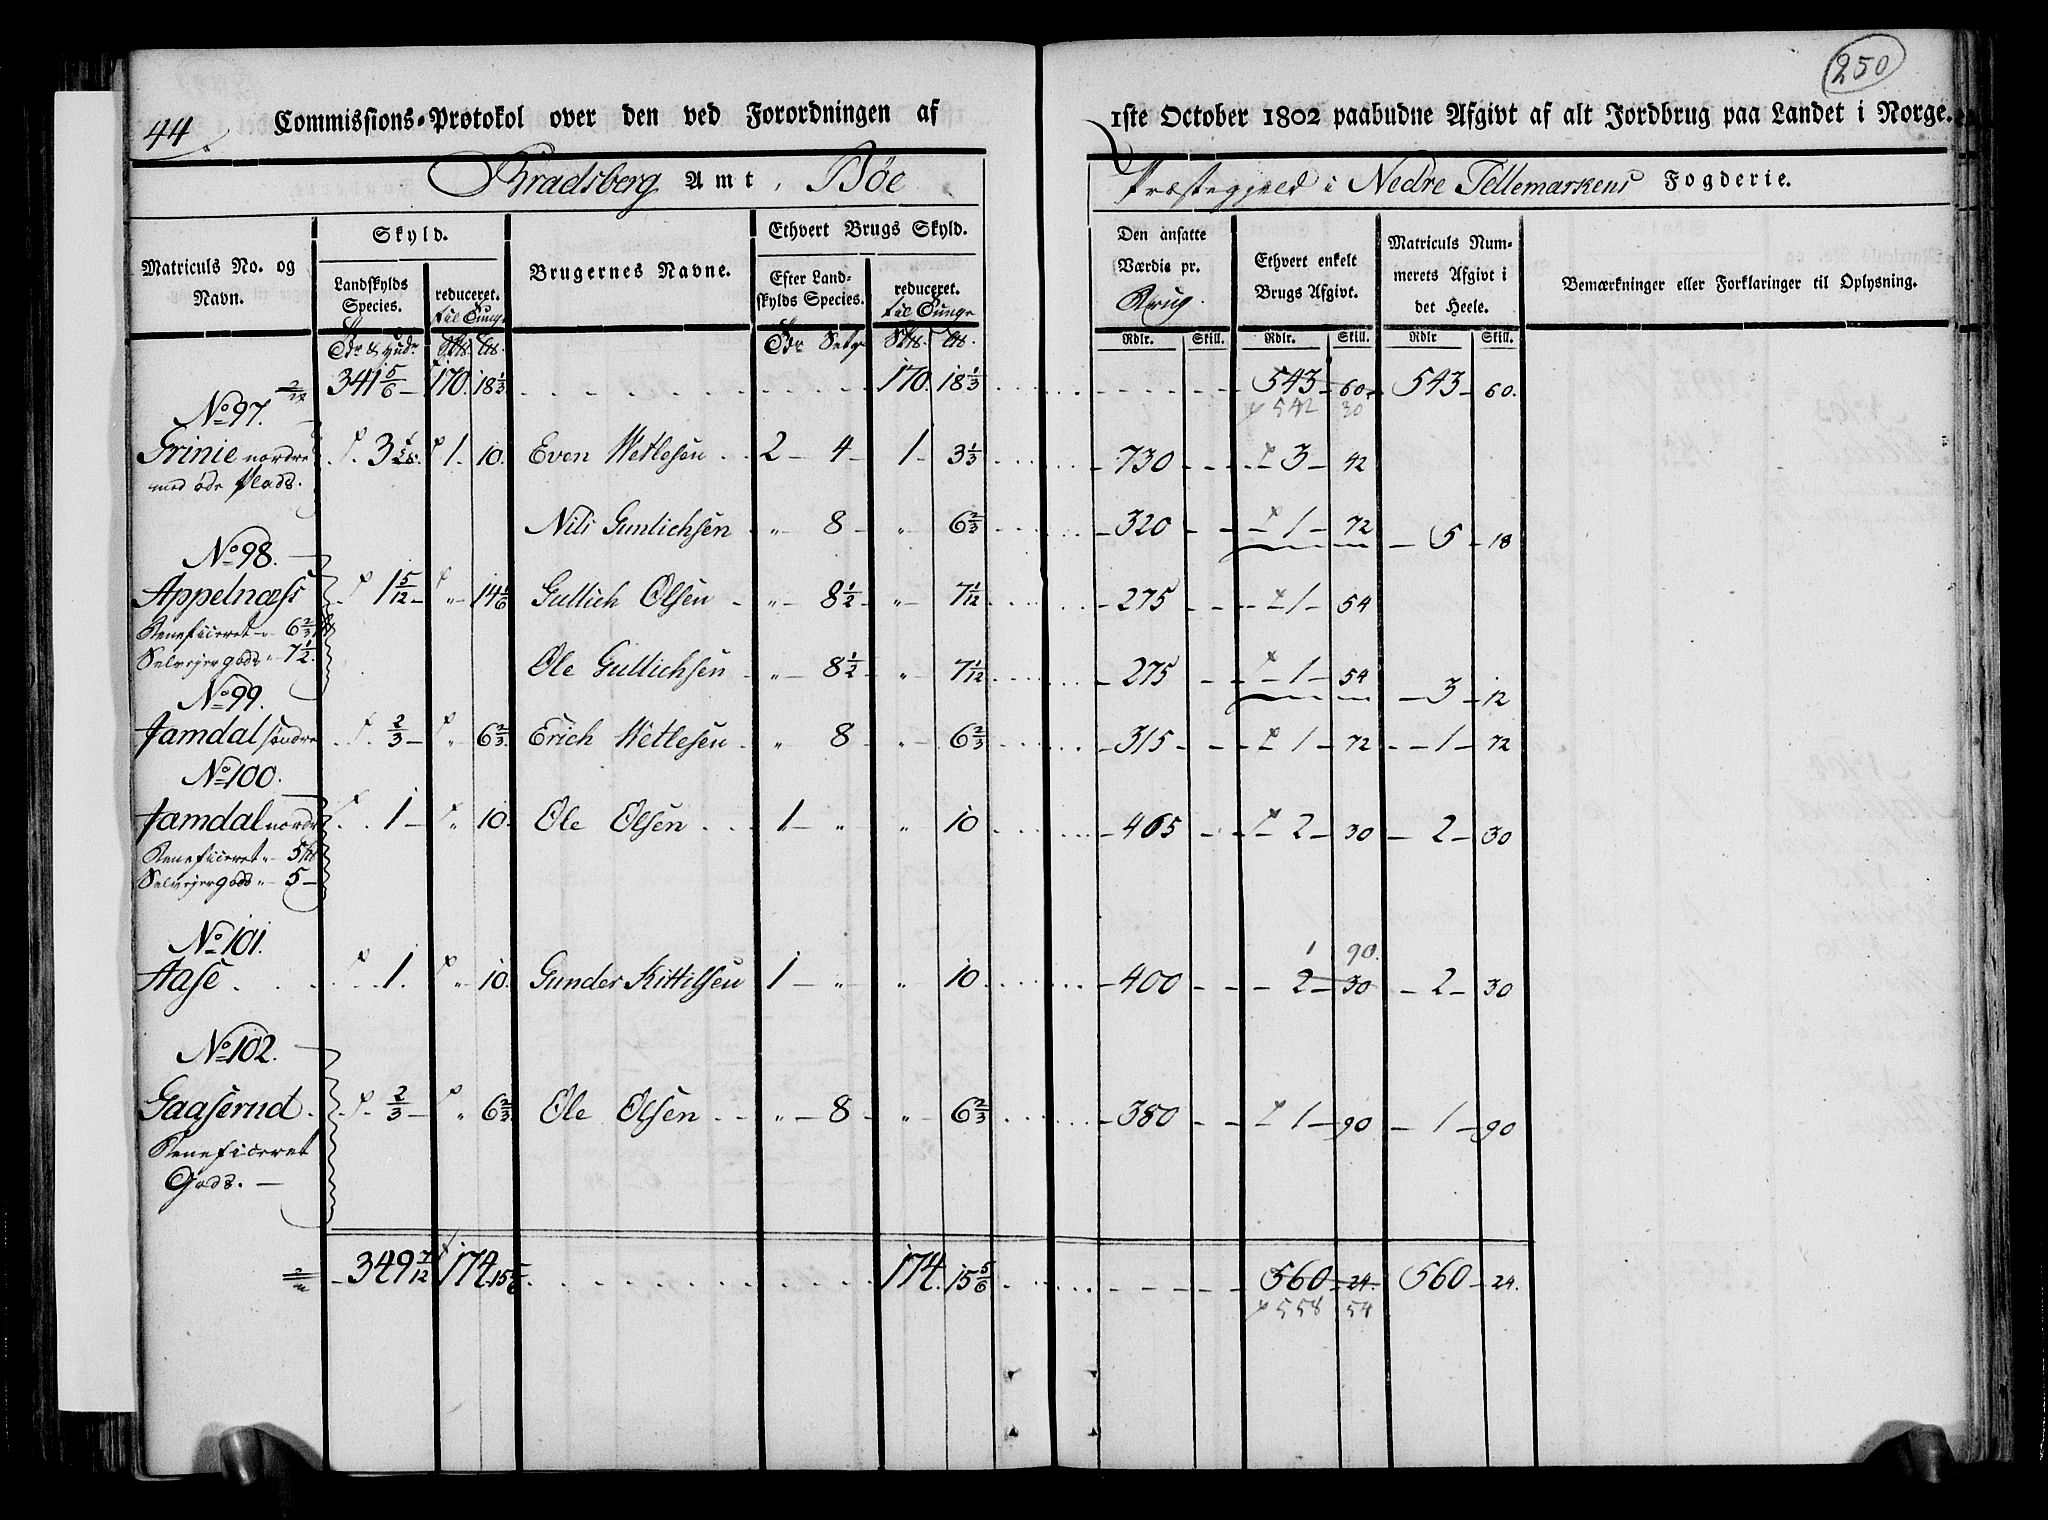 250
44.
Commissions-Protokol over den ved Forordningen af 1ste October 1802 paabudne Afgivt af alt Jordbrug paa Landet i Norge.
Bradsberg Amt, Bøe Præstegjeld i Nedre Tellemarkens Fogderie.
Matriculs No. og Navn.
Skyld.
Landskylds Species.
reduceret. til Tunge
Brugernes Navne.
Ethvert Brugs Skyld.
Efter Landskylds Species.
reduceret. til Tunge
Den ansatte Værdie pr. Brug.
Ethvert enkelt Brugs Afgivt.
Matriculs Nummerets Afgivt i det Heele.
Bemærkninger eller Forklaringer til Oplysning.
Rdlr. Skill. Rdlr. Skill. Rdlr Skill.
341 5/6 170. 18 1/3 170. 18 1/3 543 60 543 60.
542 30
No 97.
Grinie nordre 3 1. 10. Even Wetlesen 2 4 1 3 1/3 730 3 42
med øde Plads.
Nils Gunlichsen " 8 " 6 2/3 320 1 72 5 18
No 98.
Appelnæss 1 5/12 " 14 1/6 Gullich Olsen " 8 1/2 " 7 1/12 275 1 54
Beneficeret " 6 2/3
Selvejergods " 7 1/2.
Ole Gullichsen " 8 1/2 " 7 1/12 275 1 54 3 12
No 99.
Jamdal søndre 2/3 " 6 2/3. Erich Wetlesen " 8 " 6 2/3 315 1 72 1 72
No 100.
Jamdal nordre 1 " 10. Ole Olsen 1 " " 10 465 2 30 2 30
Beneficeret " 5
Selvejergods " 5
No 101.
1 90.
Aase 1. " 10. Gunder Kittilsen 1 " " 10 400 2 30 2 30
No 102.
Gaaserud 2/3 " 6 2/3 Ole Olsen " 8 " 6 2/3 380 1 90 1 90
Beneficeret
Gods.
349 7/12 174. 15 5/6 174. 15 5/6 560 24. 560 24.
558 54